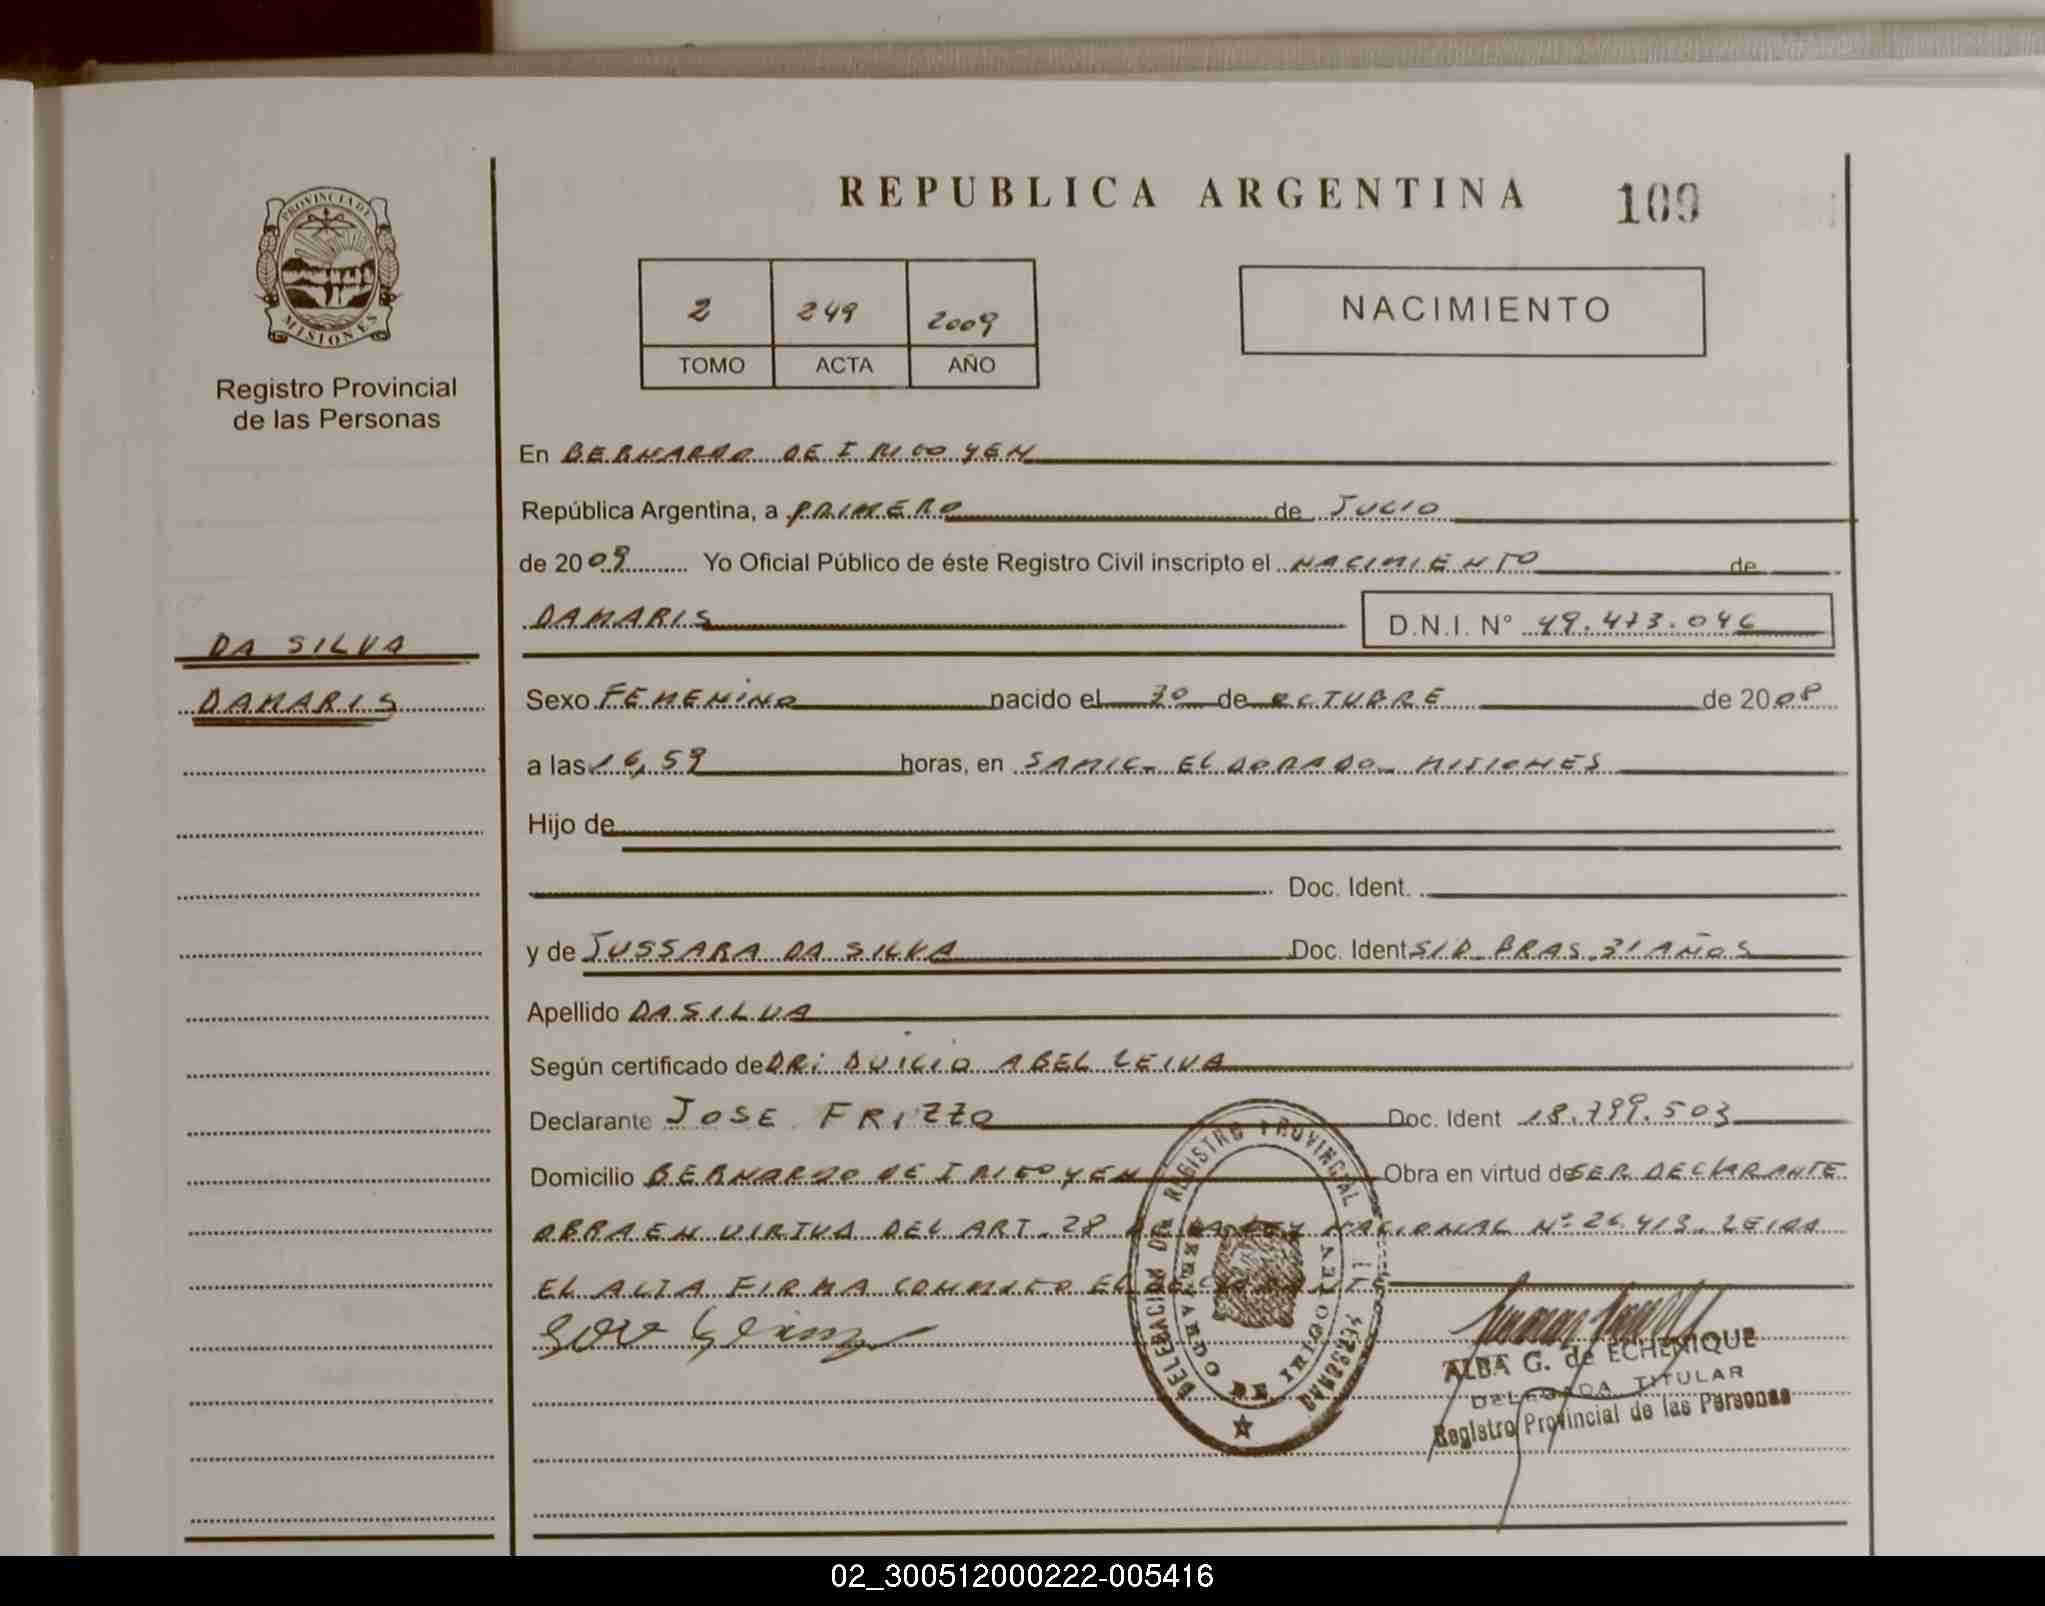 REPUBLICA ARGENTINA 109
PROVINCIA DE
MISIONES
Registro Provincial
de las Personas
2 249 2009
TOMO ACTA AÑO
NACIMIENTO
En BERNARDO DE IRIGOYEN
República Argentina, a PRIMERO de JULIO
de 2009 Yo Oficial Público de éste Registro Civil inscripto el NACIMIENTO de
DAMARIS D.N.I. N° 49.473.046
DA SILVA
DAMARIS
Sexo FEMENINO nacido el de OCTUBRE de 2008
a las 16,59 horas, en SAMIC - ELDORADO - MISIONES
Hijo de
Doc. Ident.
y de JUSSARA DA SILVA Doc. Ident S/D. BRAS. 31 AÑOS
Apellido DA SILVA
Según certificado de DR: DUILIO ABEL LEIVA
Declarante JOSE FRIZZO Doc. Ident 18.799.503
Domicilio BERNARDO DE IRIGOYEN Obra en virtud de SER DECLARANTE
OBRA EN VIRTUD DEL ART. 28 DE LA LEY NACIONAL N° 26.413. LEIDA
EL ACTA FIRMA CONMIGO EL DECLARANTE
DELEGACION DEL REGISTRO PROVINCIAL
DE IRIGOYEN
ALBA G. de ECHENIQUE
DELEGADA TITULAR
Registro Provincial de las Personas
02_300512000222-005416